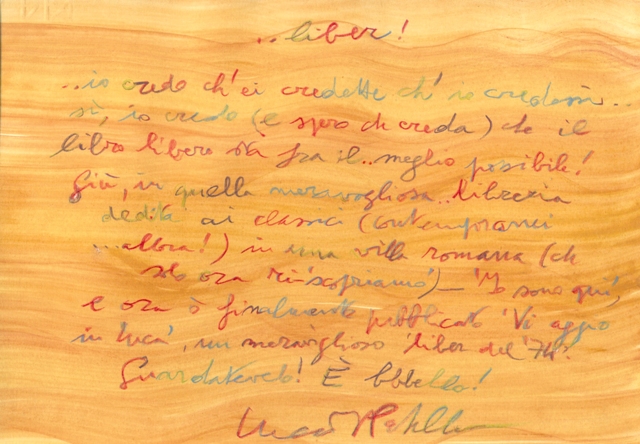 ..liber!
..io credo ch'ei credette ch'io credessi..
sì, io credo (e spero ch creda) che il
libro libero sta fra il..meglio possibile!
Già, in quella meravigliosa..libreria
dedita ai classici (contemporanei
...allora!) in una villa romana (ch
solo ora ri-scopriamo)_ 'Io sono qui',
e ora è finalmente pubblicato 'Vi aggio
in luca', un meraviglioso 'liber del '74'.
Guardatevelo! È bbbello!